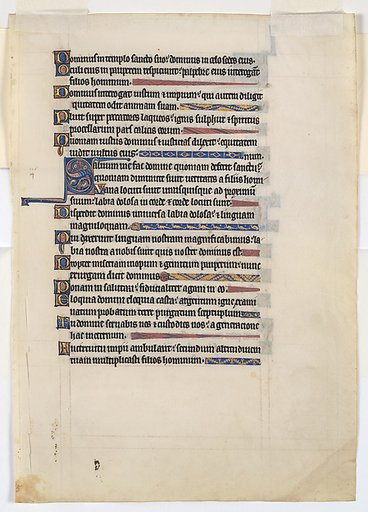 Dominus in templo sancto suo: dominus in celo sedes eius.
Oculi eius in pauperem respiciunt: palpebre eius interrogant
filios hominum.
Dominus interrogat iustum et impium: qui autem diligit
iniquitatem odit animam suam.
Pluit super peccatores laqueos: ignis sulphur et spiritus
procellarum pars calicis eorum.
Quoniam iustus dominus et iusticias dilexit: equitatem
vidit vultus eius.
Saluum me fac domine quoniam defecit sanctus:
quoniam diminute sunt veritates a filiis hominum.
Vana locuti sunt unusquisque ad proximum
suum: labia dolosa in corde et corde locuti sunt.
Disperdet dominus universa labia dolosa: et linguam
magniloquam.
Qui dixerunt linguam nostram magnificabimus: la
bia nostra a nobis sunt quis noster dominus est.
Propter miseriam inopum et gemitum pauperum: nunc
exurgam dicit dominus.
Ponam in salutari: fiducialiter agam in eo.
Eloquia domini eloquia casta: argentum igne exami
natum probatum terre purgatum septuplum.
Tu domine servabis nos et custodies nos: a generatione
hac in eternum.
In circuitu impii ambulant: secundum altitudinem
tuam multiplicasti filios hominum.